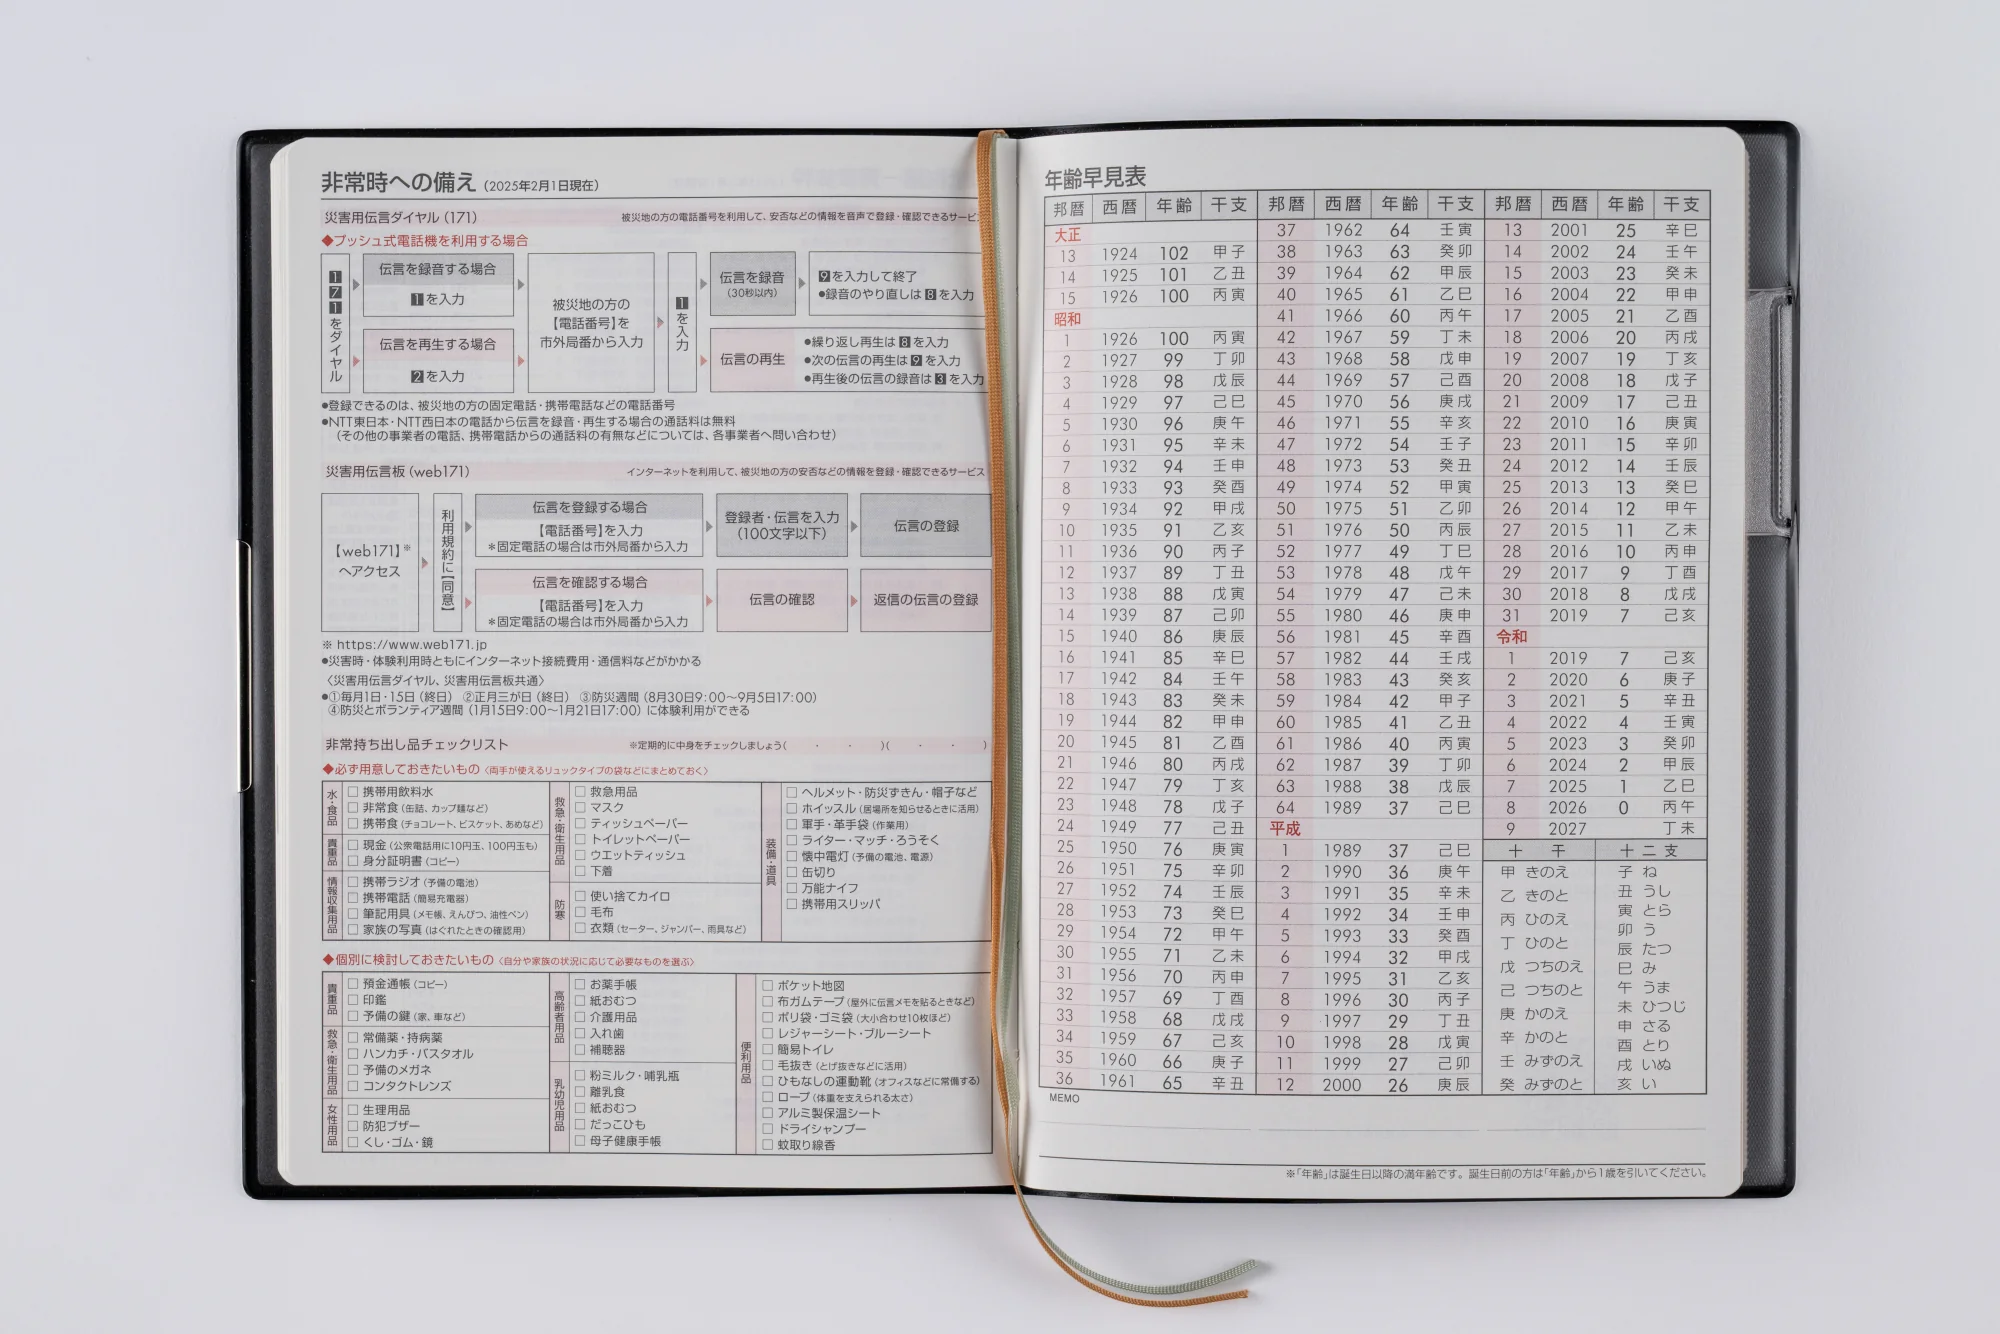 非常時への備え（2025年2月1日現在）
災害用伝言ダイヤル（171） 被災地の方の電話番号を利用して、安否などの情報を音声で登録・確認できるサービ
◆プッシュ式電話機を利用する場合
171をダイヤル
伝言を録音する場合
1を入力
伝言を再生する場合
2を入力
被災地の方の
【電話番号】を
市外局番から入力
1を入力
伝言を録音
（30秒以内）
9を入力して終了
●録音のやり直しは8を入力
伝言の再生
●繰り返し再生は8を入力
●次の伝言の再生は9を入力
●再生後の伝言の録音は3を入力
●登録できるのは、被災地の方の固定電話・携帯電話などの電話番号
●NTT東日本・NTT西日本の電話から伝言を録音・再生する場合の通話料は無料
（その他の事業者の電話、携帯電話からの通話料の有無などについては、各事業者へ問い合わせ）
災害用伝言板（web171） インターネットを利用して、被災地の方の安否などの情報を登録・確認できるサービス
【web171】※
へアクセス
利用規約に【同意】
伝言を登録する場合
【電話番号】を入力
＊固定電話の場合は市外局番から入力
登録者・伝言を入力
（100文字以下）
伝言の登録
伝言を確認する場合
【電話番号】を入力
＊固定電話の場合は市外局番から入力
伝言の確認
返信の伝言の登録
※ https://www.web171.jp
●災害時・体験利用時ともにインターネット接続費用・通信料などがかかる
〈災害用伝言ダイヤル、災害用伝言板共通〉
●①毎月1日・15日（終日） ②正月三が日（終日） ③防災週間（8月30日9：00～9月5日17：00）
④防災とボランティア週間（1月15日9：00～1月21日17：00）に体験利用ができる
非常持ち出し品チェックリスト ※定期的に中身をチェックしましょう（ ・ ・ ）（ ・ ・ ）
◆必ず用意しておきたいもの〈両手が使えるリュックタイプの袋などにまとめておく〉
水・食品
□ 携帯用飲料水
□ 非常食（缶詰、カップ麺など）
□ 携帯食（チョコレート、ビスケット、あめなど）
貴重品
□ 現金（公衆電話用に10円玉、100円玉も）
□ 身分証明書（コピー）
情報収集用品
□ 携帯ラジオ（予備の電池）
□ 携帯電話（簡易充電器）
□ 筆記用具（メモ帳、えんぴつ、油性ペン）
□ 家族の写真（はぐれたときの確認用）
救急・衛生用品
□ 救急用品
□ マスク
□ ティッシュペーパー
□ トイレットペーパー
□ ウエットティッシュ
□ 下着
防寒
□ 使い捨てカイロ
□ 毛布
□ 衣類（セーター、ジャンパー、雨具など）
装備・道具
□ ヘルメット・防災ずきん・帽子など
□ ホイッスル（居場所を知らせるときに活用）
□ 軍手・革手袋（作業用）
□ ライター・マッチ・ろうそく
□ 懐中電灯（予備の電池、電源）
□ 缶切り
□ 万能ナイフ
□ 携帯用スリッパ
◆個別に検討しておきたいもの〈自分や家族の状況に応じて必要なものを選ぶ〉
貴重品
□ 預金通帳（コピー）
□ 印鑑
□ 予備の鍵（家、車など）
救急・衛生用品
□ 常備薬・持病薬
□ ハンカチ・バスタオル
□ 予備のメガネ
□ コンタクトレンズ
女性用品
□ 生理用品
□ 防犯ブザー
□ くし・ゴム・鏡
高齢者用品
□ お薬手帳
□ 紙おむつ
□ 介護用品
□ 入れ歯
□ 補聴器
乳幼児用品
□ 粉ミルク・哺乳瓶
□ 離乳食
□ 紙おむつ
□ だっこひも
□ 母子健康手帳
便利用品
□ ポケット地図
□ 布ガムテープ（屋外に伝言メモを貼るときなど）
□ ポリ袋・ゴミ袋（大小合わせ10枚ほど）
□ レジャーシート・ブルーシート
□ 簡易トイレ
□ 毛抜き（とげ抜きなどに活用）
□ ひもなしの運動靴（オフィスなどに常備する）
□ ロープ（体重を支えられる太さ）
□ アルミ製保温シート
□ ドライシャンプー
□ 蚊取り線香
年齢早見表
邦暦 西暦 年齢 干支
大正
13 1924 102 甲子
14 1925 101 乙丑
15 1926 100 丙寅
昭和
1 1926 100 丙寅
2 1927 99 丁卯
3 1928 98 戊辰
4 1929 97 己巳
5 1930 96 庚午
6 1931 95 辛未
7 1932 94 壬申
8 1933 93 癸酉
9 1934 92 甲戌
10 1935 91 乙亥
11 1936 90 丙子
12 1937 89 丁丑
13 1938 88 戊寅
14 1939 87 己卯
15 1940 86 庚辰
16 1941 85 辛巳
17 1942 84 壬午
18 1943 83 癸未
19 1944 82 甲申
20 1945 81 乙酉
21 1946 80 丙戌
22 1947 79 丁亥
23 1948 78 戊子
24 1949 77 己丑
25 1950 76 庚寅
26 1951 75 辛卯
27 1952 74 壬辰
28 1953 73 癸巳
29 1954 72 甲午
30 1955 71 乙未
31 1956 70 丙申
32 1957 69 丁酉
33 1958 68 戊戌
34 1959 67 己亥
35 1960 66 庚子
36 1961 65 辛丑
邦暦 西暦 年齢 干支
37 1962 64 壬寅
38 1963 63 癸卯
39 1964 62 甲辰
40 1965 61 乙巳
41 1966 60 丙午
42 1967 59 丁未
43 1968 58 戊申
44 1969 57 己酉
45 1970 56 庚戌
46 1971 55 辛亥
47 1972 54 壬子
48 1973 53 癸丑
49 1974 52 甲寅
50 1975 51 乙卯
51 1976 50 丙辰
52 1977 49 丁巳
53 1978 48 戊午
54 1979 47 己未
55 1980 46 庚申
56 1981 45 辛酉
57 1982 44 壬戌
58 1983 43 癸亥
59 1984 42 甲子
60 1985 41 乙丑
61 1986 40 丙寅
62 1987 39 丁卯
63 1988 38 戊辰
64 1989 37 己巳
平成
1 1989 37 己巳
2 1990 36 庚午
3 1991 35 辛未
4 1992 34 壬申
5 1993 33 癸酉
6 1994 32 甲戌
7 1995 31 乙亥
8 1996 30 丙子
9 1997 29 丁丑
10 1998 28 戊寅
11 1999 27 己卯
12 2000 26 庚辰
邦暦 西暦 年齢 干支
13 2001 25 辛巳
14 2002 24 壬午
15 2003 23 癸未
16 2004 22 甲申
17 2005 21 乙酉
18 2006 20 丙戌
19 2007 19 丁亥
20 2008 18 戊子
21 2009 17 己丑
22 2010 16 庚寅
23 2011 15 辛卯
24 2012 14 壬辰
25 2013 13 癸巳
26 2014 12 甲午
27 2015 11 乙未
28 2016 10 丙申
29 2017 9 丁酉
30 2018 8 戊戌
31 2019 7 己亥
令和
1 2019 7 己亥
2 2020 6 庚子
3 2021 5 辛丑
4 2022 4 壬寅
5 2023 3 癸卯
6 2024 2 甲辰
7 2025 1 乙巳
8 2026 0 丙午
9 2027 丁未
十干
甲 きのえ
乙 きのと
丙 ひのえ
丁 ひのと
戊 つちのえ
己 つちのと
庚 かのえ
辛 かのと
壬 みずのえ
癸 みずのと
十二支
子 ね
丑 うし
寅 とら
卯 う
辰 たつ
巳 み
午 うま
未 ひつじ
申 さる
酉 とり
戌 いぬ
亥 い
MEMO
※「年齢」は誕生日以降の満年齢です。誕生日前の方は「年齢」から1歳を引いてください。